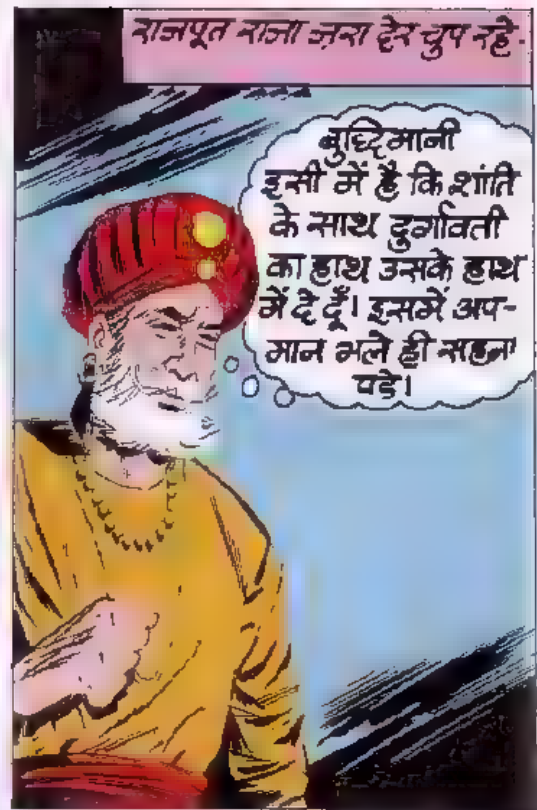 राजपूत राजा ज़रा देर चुप रहे.
बुध्दिमानी
इसी में है कि शांति
के साथ दुर्गावती
का हाथ उसके हाथ
में दे दूँ। इसमें अप-
मान भले ही सहना
पडे।